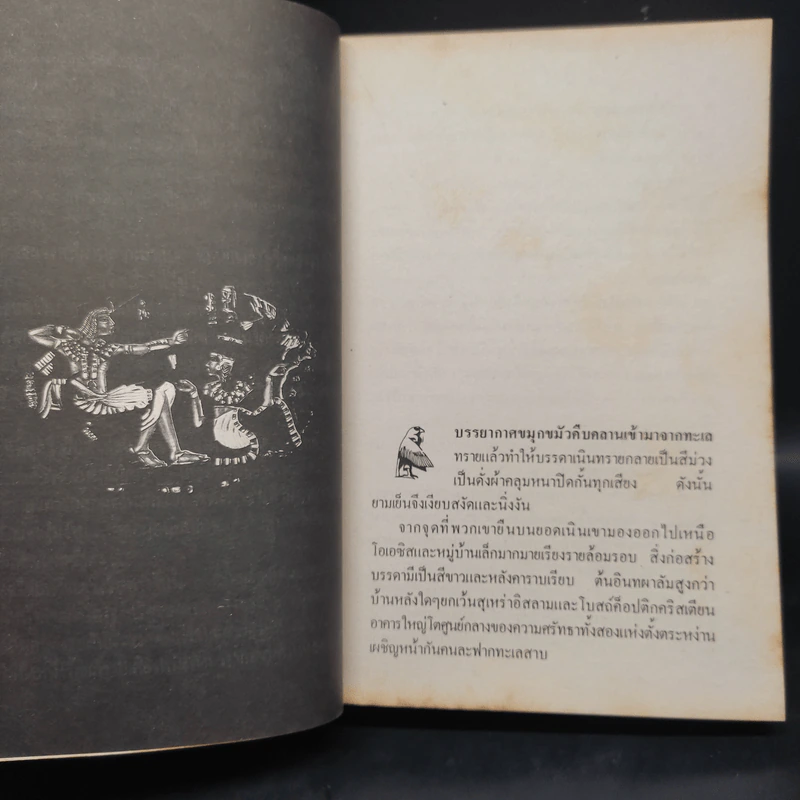 บรรยากาศขมุกขมัวคืบคลานเข้ามาจากทะเล
ทรายแล้วทำให้บรรดาเนินทรายกลายเป็นสีม่วง
เป็นดั่งผ้าคลุมหนาปิดกั้นทุกเสียง ดังนั้น
ยามเย็นจึงเงียบสงัดและนิ่งงัน
จากจุดที่พวกเขายืนบนยอดเนินเขามองออกไปเหนือ
โอเอซิสและหมู่บ้านเล็กมากมายเรียงรายล้อมรอบ สิ่งก่อสร้าง
บรรดามีเป็นสีขาวและหลังคาราบเรียบ ต้นอินทผาลัมสูงกว่า
บ้านหลังใดๆยกเว้นสุเหร่าอิสลามและโบสถ์ค็อปติกคริสเตียน
อาคารใหญ่โตศูนย์กลางของความศรัทธาทั้งสองแห่งตั้งตระหง่าน
เผชิญหน้ากันคนละฟากทะเลสาบ